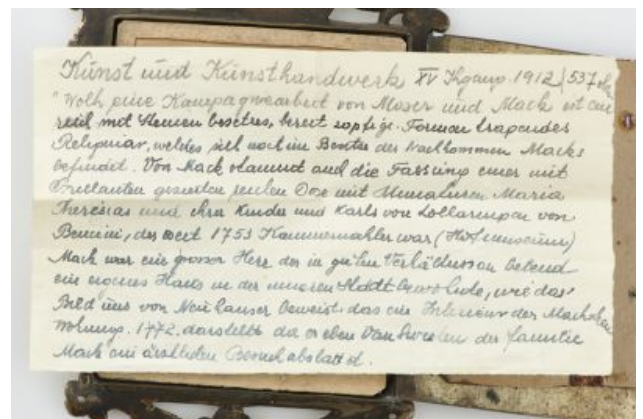 Kunst und Kunsthandwerk XV Jhgang. 1912 537
"Wohl eine Kompagniearbeit von Moser und Mack ist ein
reich mit Steinen besetztes, bereit zopfige Formen tragendes
Reliquiar, welches sich noch im Besitze der Nachkommen Macks
befindet. Von Mack stammt auch die Fassung einer mit
Brillanten gezierten reichen Dose mit Miniaturen Maria
Theresias und ihrer Kinder und Karls von Lotharingen von
Bencini, der seit 1753 Kammermahler war (Hofmuseum)
Mack war ein grosser Herr der in guten Verhältnissen lebend
ein eigenes Haus in der inneren Stadt bewohnte, wie das
Bild uns von Neuhauser beweist das ein Interieur der Mackschen
Wohnung. 1772. darstellt da er eben Van Swieten der Familie
Mack ein ärztlichen Besuch abstattet.